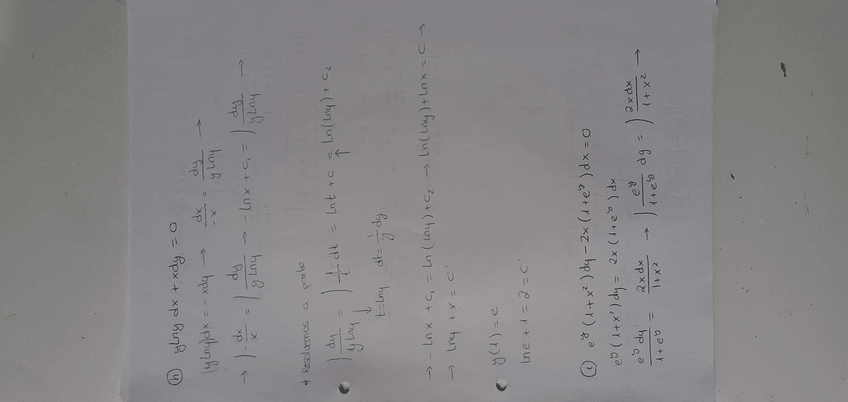 h) y lny dx + xdy = 0
(y lny)dx = - xdy → dx/-x = dy/y lny →
→ ∫ - dx/x = ∫ dy/y lny → - ln x + c₁ = ∫ dy/y lny →
* Resolvemos a parte.
∫ dy/y lny = ∫ 1/t dt = ln t + c = ln(lny) + c₂
t = lny dt = 1/y dy
→ - ln x + c₁ = ln(lny) + c₂ → ln(lny) + ln x = c →
→ lny + x = c'
y(1) = e
ln e + 1 = 2 = c'
i) e^y (1+x²) dy - 2x (1+e^y) dx = 0
e^y (1+x²) dy = 2x (1+e^y) dx
e^y dy/1+e^y = 2x dx/1+x² → ∫ e^y/1+e^y dy = ∫ 2x dx/1+x² →